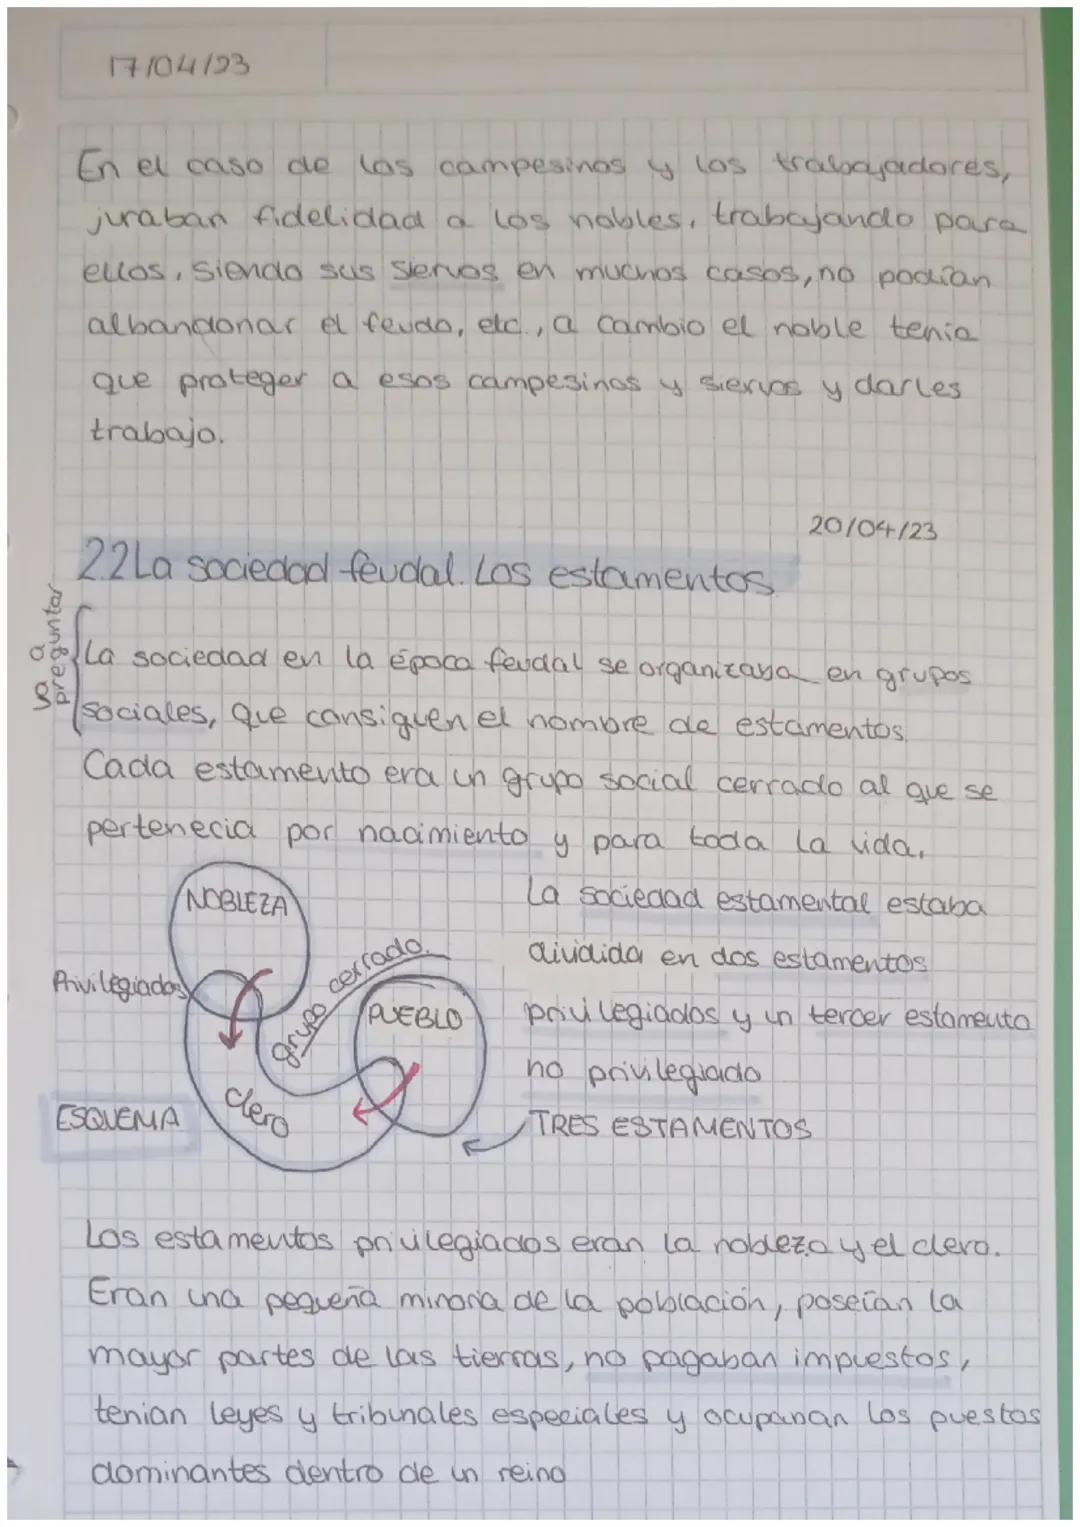 17/04/23
En el caso de los campesinos y los trabajadores,
juraban fidelidad a los nobles, trabajando para
ellos, siendo sus siervos en muchos casos, no podían
albandonar el feudo, etc., a cambio el noble tenia
que proteger a esos campesinos y siervos y darles
trabajo.
20/04/23
2.2 La sociedad feudal. Los estamentos
va a preguntar
La sociedad en la época feudal se organizaba en grupos
sociales, que consiguen el nombre de estamentos.
Cada estamento era un grupo social cerrado al que se
pertenecia por nacimiento y para toda la vida.
NOBLEZA
Privilegiados
grupo cerrado.
PUEBLO
clero
ESQUEMA
La sociedad estamental estaba
dividida en dos estamentos
privilegiados y un tercer estamento
no privilegiado
TRES ESTAMENTOS
Los estamentos privilegiados eran la nobleza y el clero.
Eran una pequeña minoria de la población, poseían la
mayor partes de las tierras, no pagaban impuestos,
tenian leyes y tribunales especiales y ocupanan los puestos
dominantes dentro de un reino